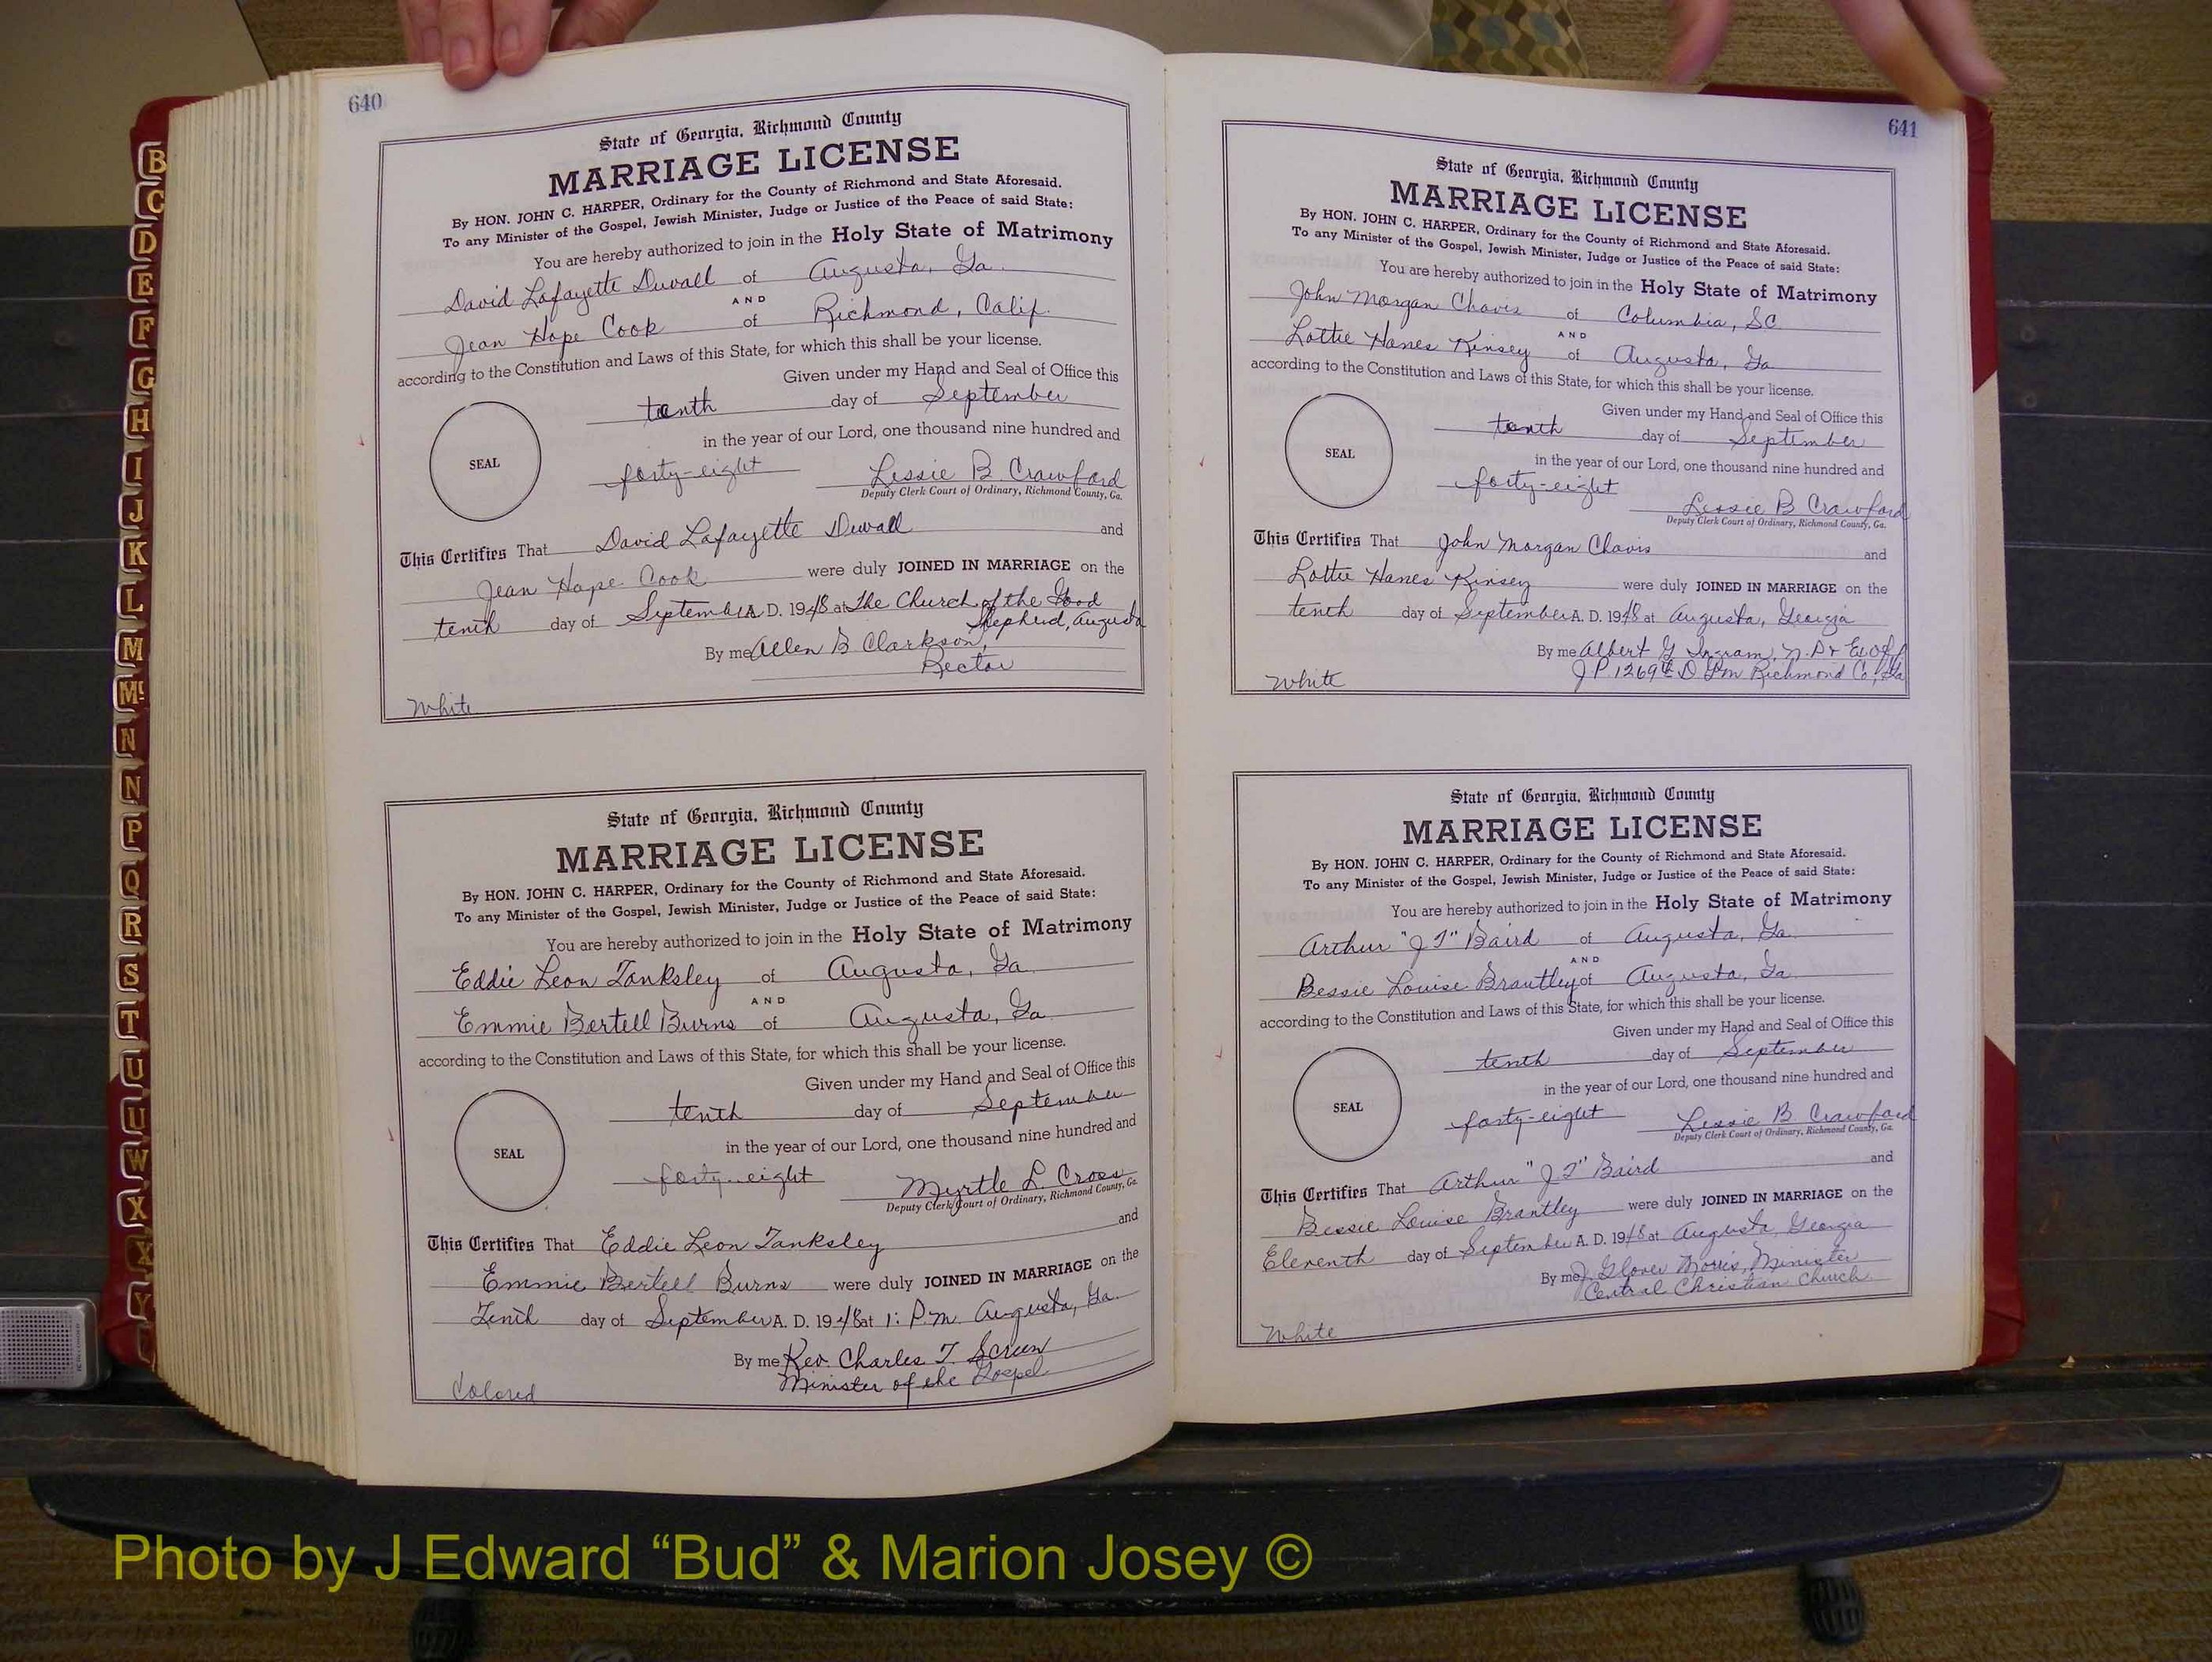 640
State of Georgia, Richmond County
MARRIAGE LICENSE
By HON. JOHN C. HARPER, Ordinary for the County of Richmond and State Aforesaid.
To any Minister of the Gospel, Jewish Minister, Judge or Justice of the Peace of said State:
You are hereby authorized to join in the Holy State of Matrimony
David Lafayette Duvall of Augusta, Ga.
AND
Jean Hope Cook of Richmond, Calif.
according to the Constitution and Laws of this State, for which this shall be your license.
Given under my Hand and Seal of Office this
tenth day of September
in the year of our Lord, one thousand nine hundred and
SEAL
forty-eight Lessie B. Crawford
Deputy Clerk Court of Ordinary, Richmond County, Ga.
This Certifies That David Lafayette Duvall and
Jean Hope Cook were duly JOINED IN MARRIAGE on the
tenth day of September A. D. 1948 at The Church of the Good
Shepherd, Augusta
By me Allen B Clarkson,
Rector
White
State of Georgia, Richmond County
MARRIAGE LICENSE
By HON. JOHN C. HARPER, Ordinary for the County of Richmond and State Aforesaid.
To any Minister of the Gospel, Jewish Minister, Judge or Justice of the Peace of said State:
You are hereby authorized to join in the Holy State of Matrimony
Eddie Leon Tanksley of Augusta, Ga.
AND
Emmie Bertell Burns of Augusta, Ga.
according to the Constitution and Laws of this State, for which this shall be your license.
Given under my Hand and Seal of Office this
tenth day of September
in the year of our Lord, one thousand nine hundred and
SEAL
forty-eight Myrtle L. Cross
Deputy Clerk Court of Ordinary, Richmond County, Ga.
This Certifies That Eddie Leon Tanksley and
Emmie Bertell Burns were duly JOINED IN MARRIAGE on the
Tenth day of September A. D. 1948 at 1: P.m. Augusta, Ga.
By me Rev. Charles T. Screen
Minister of the Gospel
Colored
641
State of Georgia, Richmond County
MARRIAGE LICENSE
By HON. JOHN C. HARPER, Ordinary for the County of Richmond and State Aforesaid.
To any Minister of the Gospel, Jewish Minister, Judge or Justice of the Peace of said State:
You are hereby authorized to join in the Holy State of Matrimony
John Morgan Chavis of Columbia, SC
AND
Lottie Hanes Kinsey of Augusta, Ga
according to the Constitution and Laws of this State, for which this shall be your license.
Given under my Hand and Seal of Office this
tenth day of September
in the year of our Lord, one thousand nine hundred and
SEAL
forty-eight Lessie B Crawford
Deputy Clerk Court of Ordinary, Richmond County, Ga.
This Certifies That John Morgan Chavis and
Lottie Hanes Kinsey were duly JOINED IN MARRIAGE on the
tenth day of September A. D. 1948 at Augusta, Georgia
By me Albert G Ingram, N.P &
J P 1269th D Richmond Co, Ga
White
State of Georgia, Richmond County
MARRIAGE LICENSE
By HON. JOHN C. HARPER, Ordinary for the County of Richmond and State Aforesaid.
To any Minister of the Gospel, Jewish Minister, Judge or Justice of the Peace of said State:
You are hereby authorized to join in the Holy State of Matrimony
Arthur "J T" Baird of Augusta, Ga.
AND
Bessie Louise Brantley of Augusta, Ga.
according to the Constitution and Laws of this State, for which this shall be your license.
Given under my Hand and Seal of Office this
tenth day of September
in the year of our Lord, one thousand nine hundred and
SEAL
forty-eight Lessie B. Crawford
Deputy Clerk Court of Ordinary, Richmond County, Ga.
This Certifies That Arthur "J T" Baird and
Bessie Louise Brantley were duly JOINED IN MARRIAGE on the
Eleventh day of September A. D. 1948 at Augusta, Georgia
By me J. Glover Morris, Minister
Central Christian Church
White
B
C
D
E
F
G
H
I
J
K
L
M
Mc
N
N
P
Q
R
S
T
U
U
W
X
X
Y
Photo by J Edward “Bud” & Marion Josey ©